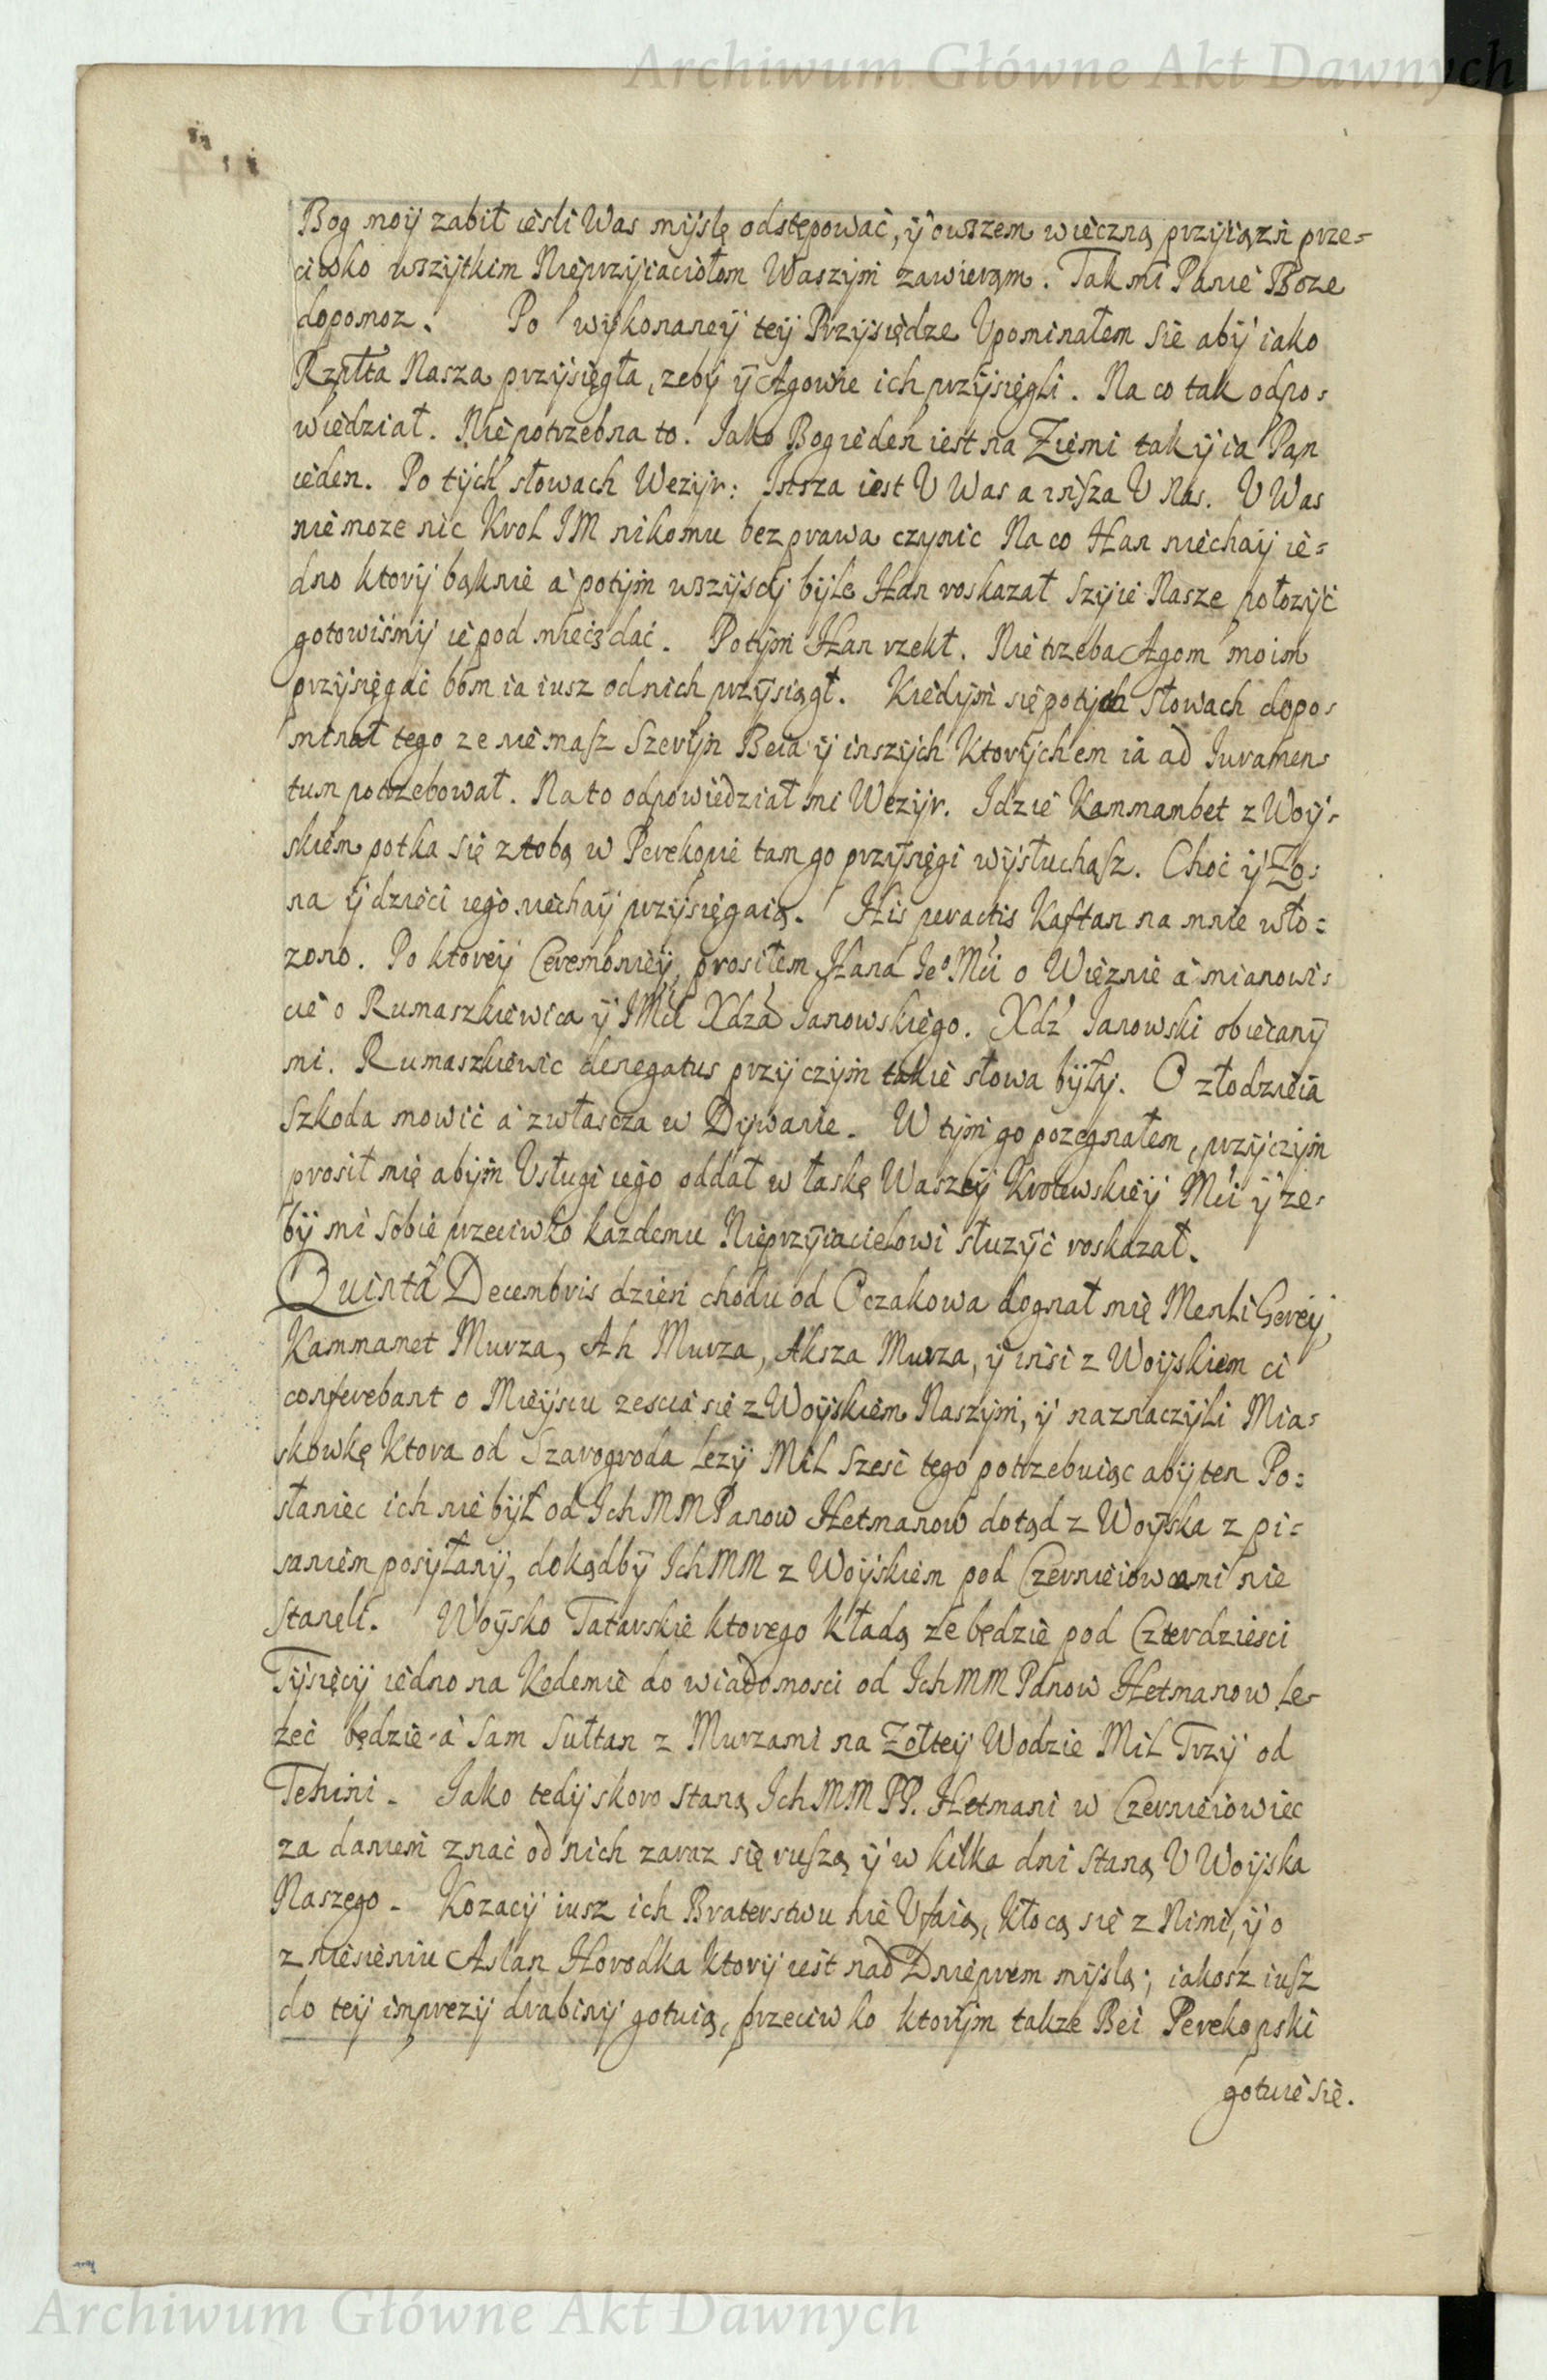 Archiwum Główne Akt Dawnych
Bog moÿ zabił ieśli Was myslę odstępować, ÿ owszem wieczną przÿiązń prze=
ciwko wszÿtkim Nieprzÿiaciołom Waszÿm zawieram. Tak mi Panie Boze
dopomoz. Po wÿkonaneÿ teÿ Przÿsiędze Upominałem sie abÿ iako
Rzplta Nasza przÿsięgła, zebÿ ÿ Agowie ich przÿsięgli. Na co tak odpo=
wiedział. Nie potrzebna to. Iako Bog ieden iest na Ziemi tak ÿ ia Pan
ieden. Po tÿch słowach Wezÿr: Insza iest U Was a insza U Nas. U Was
nie moze nic Krol IM nikomu bez prawa czynic Na co Han niechaÿ ie=
dno ktorÿ bąknie a potÿm wszÿscÿ bÿle Han roskazał Szÿie Nasze połozÿć
gotowiśmÿ ie pod miecz dać. Potÿm Han rzekł. Nie trzeba Agom moim
przÿsięgać bom ia iusz od nich przÿsiągł. Kiedÿm się po tÿch słowach dopo=
minał tego ze niemasz Szerÿn Beia ÿ inszÿch ktorÿchem ia ad Iuramen=
tum potrzebował. Na to odpowiedział mi Wezÿr. Idzie Kammanbet z Woÿ=
skiem potka się z tobą w Perekopie tam go przÿsięgi wÿsłuchasz. Choć ÿ Zo=
na ÿ dzieci iego niechaÿ przÿsięgaią. His peractis Kaftan na mnie wło=
zono. Po ktoreÿ Ceremonieÿ prosiłem Hana Ieº Mći o Więznie a mianowi=
cie o Rumaszkiewica ÿ IMći Xdza Ianowskiego. Xdz Ianowski obiecanÿ
mi. Rumaszkiewic denegatus przÿ czÿm takie słowa bÿłÿ. O złodzieia
szkoda mowić a zwłascza w Dÿwanie. W tÿm go pozegnałem, przÿczÿm
prosił mię abÿm Usługi iego oddał w łaskę Waszeÿ Krolewskieÿ Mći ÿ ze=
bÿ mi sobie przeciwko kazdemu Nieprzÿiacielowi słuzÿć roskazał.
Quinta Decembris dzień chodu od Oczakowa dognał mię Menli Gereÿ,
Kammamet Murza, Ah Murza, Aksza Murza, ÿ insi z Woÿskiem ci
conferebant o Mieÿscu zescia się z Woÿskiem Naszÿm, ÿ naznaczÿli Mia=
skowkę ktora od Szarogroda lezÿ Mil szesć tego potrzebuiąc abÿ ten Po=
słaniec ich nie bÿł od Ich MM Panow Hetmanow dotąd z Woÿska z pi=
saniem posÿłanÿ, dokądbÿ Ich MM z Woÿskiem pod Czernieiowcami nie
staneli. Woÿsko Tatarskie ktorego kładą ze będzie pod Czterdziesci
Tÿsięcÿ iedno na Kodemie do wiadomosci od Ich MM Panow Hetmanow le=
zeć będzie a sam Sułtan z Murzami na Zołteÿ Wodzie Mil Trzÿ od
Tehini. Iako tedÿ skoro staną Ich MM PP. Hetmani w Czernieiowiec
za daniem znać od nich zaraz się ruszą ÿ w kilka dni staną U Woÿska
Naszego. Kozacÿ iusz ich Braterstwu nie Ufaią, kłocą się z Nimi, ÿ o
zniesieniu Aslan Horodka ktorÿ iest nad Dnieprem mÿslą; iakosz iusz
do teÿ imprezÿ drabinÿ gotuią, przeciwko ktorÿm takze Bei Perekopski
gotuie sie.
Archiwum Główne Akt Dawnych